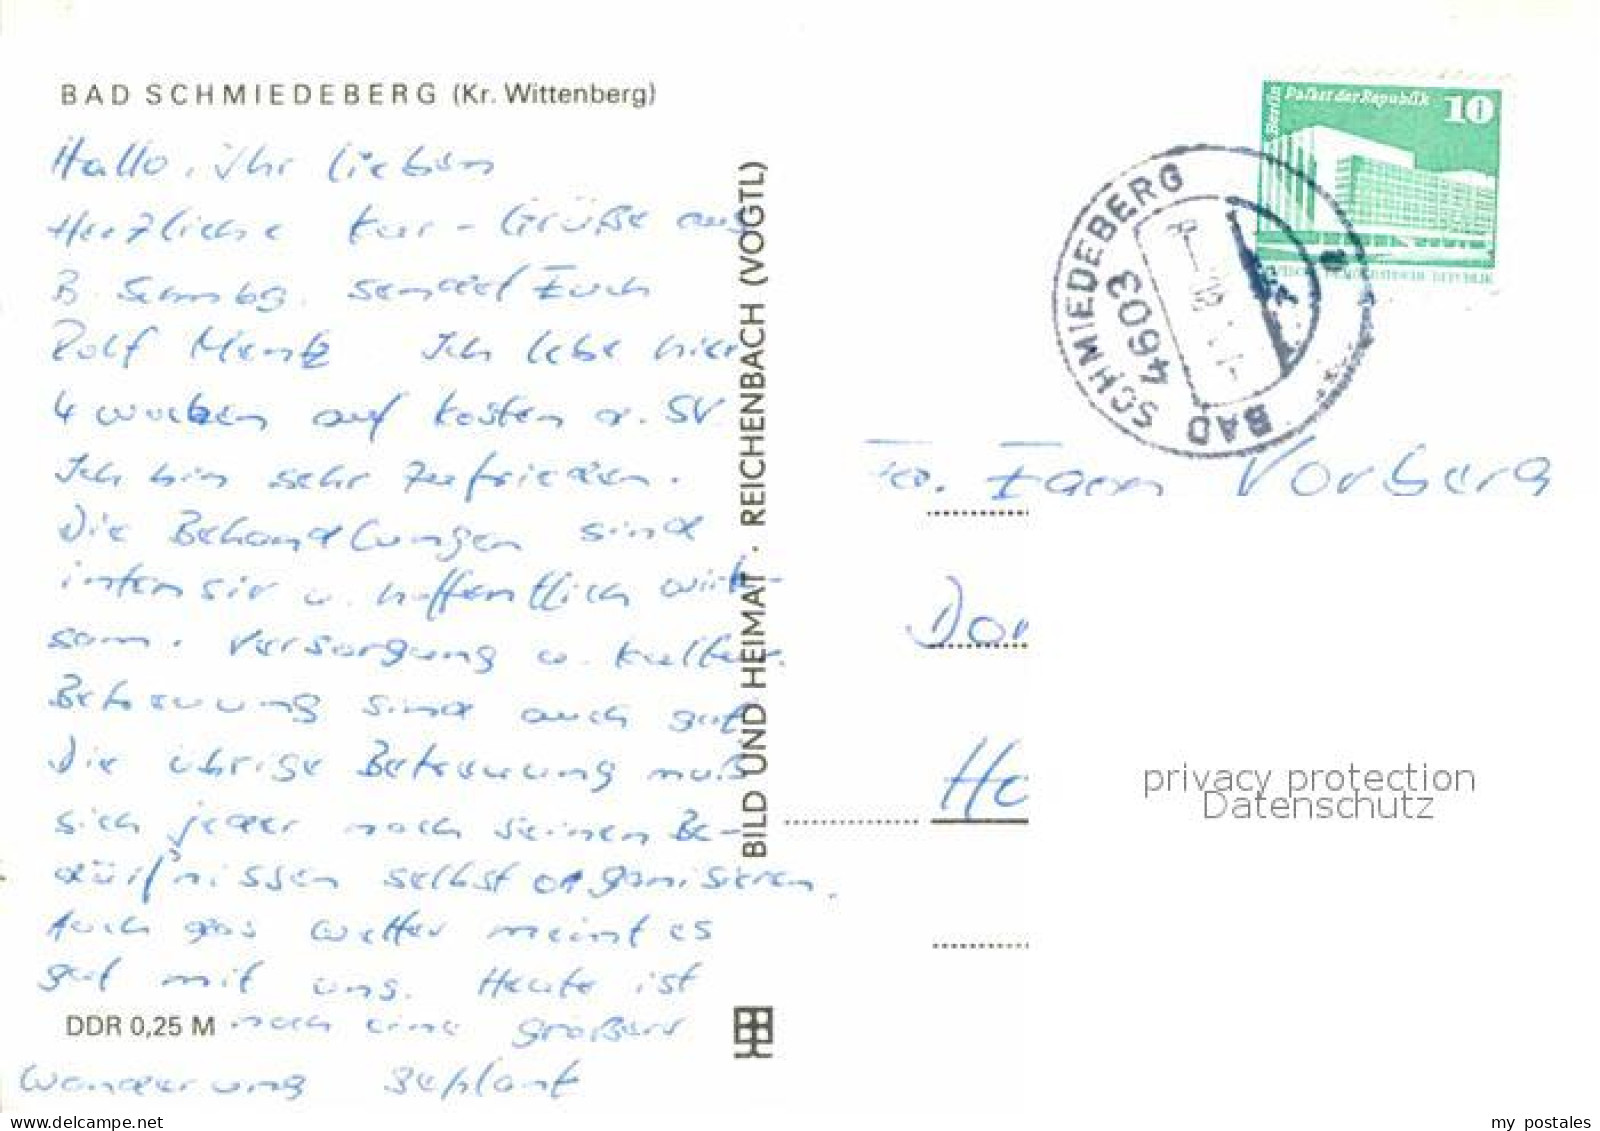 BAD SCHMIEDEBERG (Kr. Wittenberg)
Hallo, Ihr lieben
Herzliche Kur-Grüße aus
B. Schmbg. sendet Euch
Rolf Mentz Ich lebe hier
4 Wochen auf Kosten d. SV
Ich bin sehr zufrieden.
Die Behandlungen sind
intensiv u. hoffentlich wirk-
sam. Versorgung u. kultur.
Betreuung sind auch gut
Die übrige Betreuung muß
sich jeder nach seinen Be-
dürfnissen selbst organisieren.
Auch das Wetter meint es
gut mit uns. Heute ist
DDR 0,25 M
noch eine größere
Wanderung geplant
BILD UND HEIMAT · REICHENBACH (VOGTL)
Berlin
Palast der Republik
10
BAD SCHMIEDEBERG
4603
a
Fa. Vorberg
privacy protection
Datenschutz
my postales